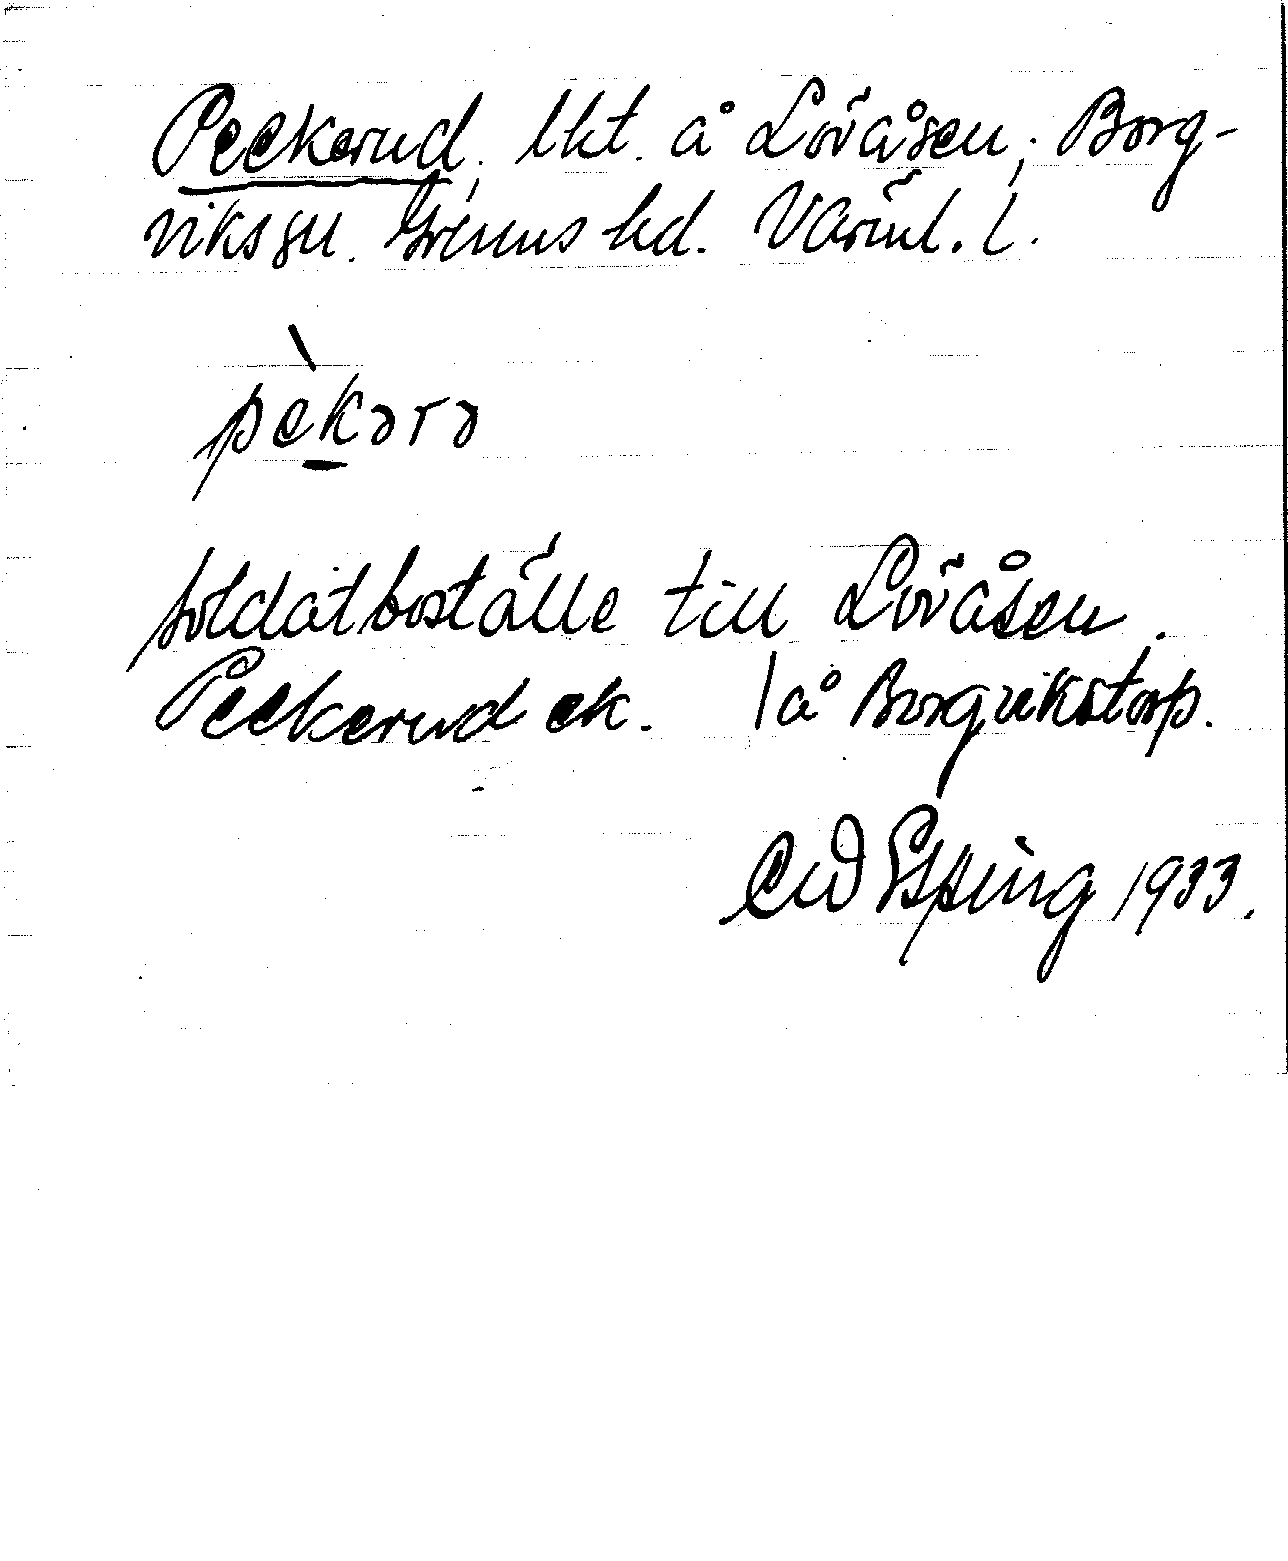 Peckerud, lht. å Lövåsen, Borg-
viks sn. Grums hd. Värml. l.
pèkərə
soldatboställe till Lövåsen.
Peckerud ek. / å Borgvikstorp.
CW Epping 1933.